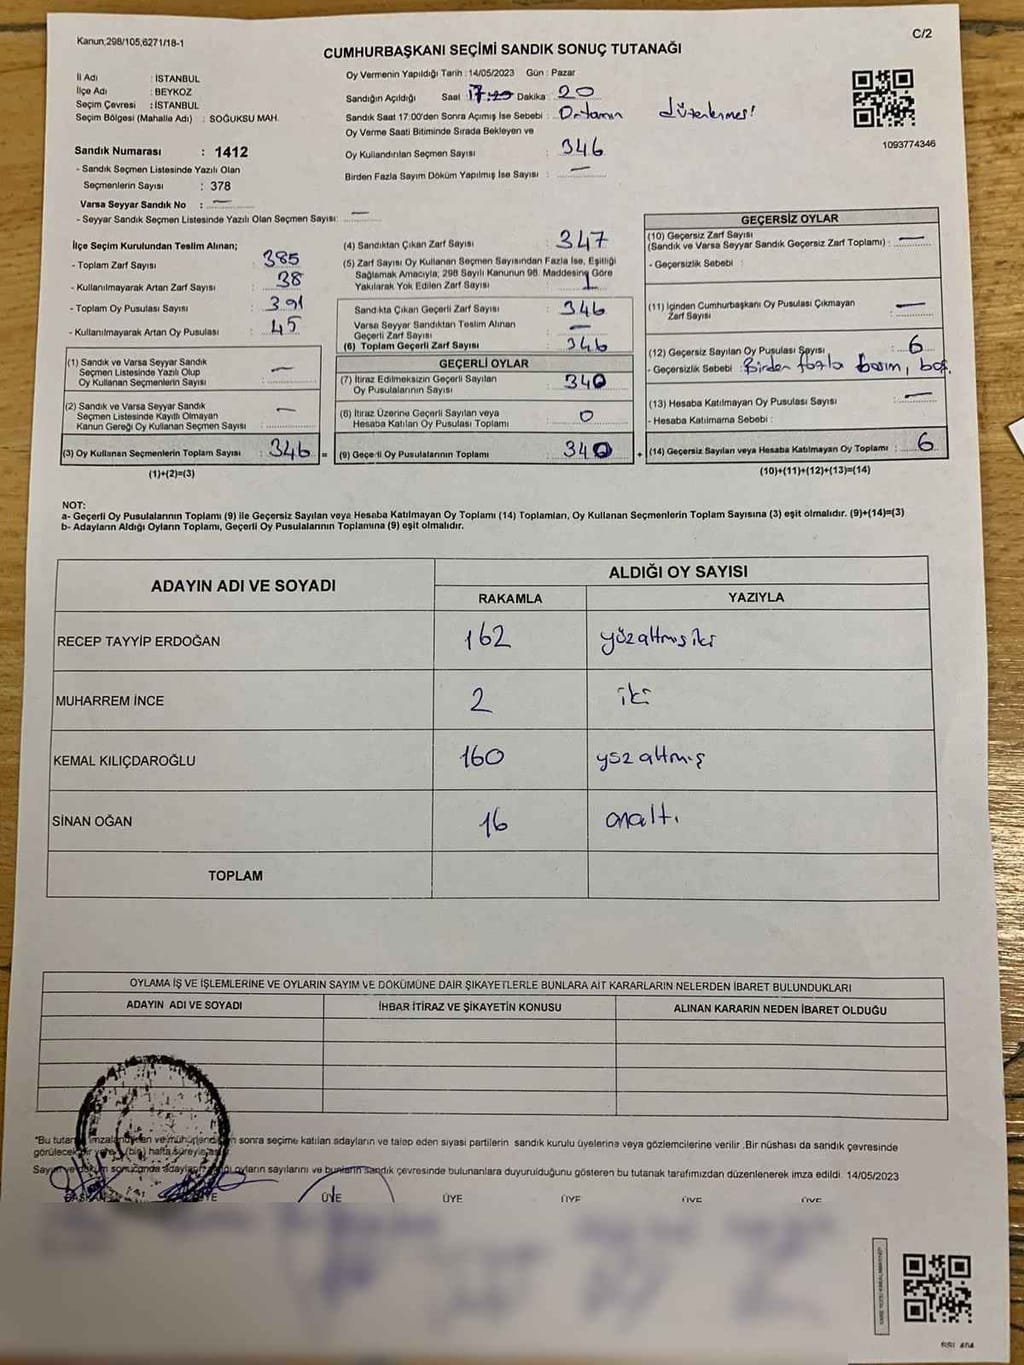 Kanun,298/105,6271/18-1
C/2
CUMHURBAŞKANI SEÇİMİ SANDIK SONUÇ TUTANAĞI
İl Adı : İSTANBUL
İlçe Adı : BEYKOZ
Seçim Çevresi : İSTANBUL
Seçim Bölgesi (Mahalle Adı) : SOĞUKSU MAH.
Sandık Numarası : 1412
- Sandık Seçmen Listesinde Yazılı Olan
Seçmenlerin Sayısı : 378
Varsa Seyyar Sandık No : —
- Seyyar Sandık Seçmen Listesinde Yazılı Olan Seçmen Sayısı: —
Oy Vermenin Yapıldığı Tarih : 14/05/2023 Gün : Pazar
Sandığın Açıldığı Saat 17:20 Dakika : 20
Sandık Saat 17:00'den Sonra Açımış İse Sebebi : Ortamın düzenlenmesi
Oy Verme Saati Bitiminde Sırada Bekleyen ve
Oy Kullandırılan Seçmen Sayısı : 346
Birden Fazla Sayım Döküm Yapılmış İse Sayısı : —
1093774346
İlçe Seçim Kurulundan Teslim Alınan;
- Toplam Zarf Sayısı : 385
- Kullanılmayarak Artan Zarf Sayısı : 38
- Toplam Oy Pusulası Sayısı : 391
- Kullanılmayarak Artan Oy Pusulası : 45
(1) Sandık ve Varsa Seyyar Sandık
Seçmen Listesinde Yazılı Olup
Oy Kullanan Seçmenlerin Sayısı : —
(2) Sandık ve Varsa Seyyar Sandık
Seçmen Listesinde Kayıtlı Olmayan
Kanun Gereği Oy Kullanan Seçmen Sayısı : —
(3) Oy Kullanan Seçmenlerin Toplam Sayısı : 346 =
(1)+(2)=(3)
(4) Sandıktan Çıkan Zarf Sayısı : 347
(5) Zarf Sayısı Oy Kullanan Seçmen Sayısından Fazla İse, Eşitliği
Sağlamak Amacıyla; 298 Sayılı Kanunun 98. Maddesine Göre
Yakılarak Yok Edilen Zarf Sayısı : 1
Sandıkta Çıkan Geçerli Zarf Sayısı : 346
Varsa Seyyar Sandıktan Teslim Alınan
Geçerli Zarf Sayısı : —
(6) Toplam Geçerli Zarf Sayısı : 346
GEÇERLİ OYLAR
(7) İtiraz Edilmeksizin Geçerli Sayılan
Oy Pusulalarının Sayısı : 340
(8) İtiraz Üzerine Geçerli Sayılan veya
Hesaba Katılan Oy Pusulası Toplamı : 0
(9) Geçerli Oy Pusulalarının Toplamı : 340 +
GEÇERSİZ OYLAR
(10) Geçersiz Zarf Sayısı
(Sandık ve Varsa Seyyar Sandık Geçersiz Zarf Toplamı) : —
- Geçersizlik Sebebi :
(11) İçinden Cumhurbaşkanı Oy Pusulası Çıkmayan
Zarf Sayısı : —
(12) Geçersiz Sayılan Oy Pusulası Sayısı : 6
- Geçersizlik Sebebi : Birden fazla basım, boş.
(13) Hesaba Katılmayan Oy Pusulası Sayısı : —
- Hesaba Katılmama Sebebi :
(14) Geçersiz Sayılan veya Hesaba Katılmayan Oy Toplamı : 6
(10)+(11)+(12)+(13)=(14)
NOT:
a- Geçerli Oy Pusulalarının Toplamı (9) ile Geçersiz Sayılan veya Hesaba Katılmayan Oy Toplamı (14) Toplamları, Oy Kullanan Seçmenlerin Toplam Sayısına (3) eşit olmalıdır. (9)+(14)=(3)
b- Adayların Aldığı Oyların Toplamı, Geçerli Oy Pusulalarının Toplamına (9) eşit olmalıdır.
ADAYIN ADI VE SOYADI
ALDIĞI OY SAYISI
RAKAMLA YAZIYLA
RECEP TAYYİP ERDOĞAN 162 yüzaltmışiki
MUHARREM İNCE 2 iki
KEMAL KILIÇDAROĞLU 160 yüzaltmış
SİNAN OĞAN 16 onaltı
TOPLAM
OYLAMA İŞ VE İŞLEMLERİNE VE OYLARIN SAYIM VE DÖKÜMÜNE DAİR ŞİKAYETLERLE BUNLARA AİT KARARLARIN NELERDEN İBARET BULUNDUKLARI
ADAYIN ADI VE SOYADI İHBAR İTİRAZ VE ŞİKAYETİN KONUSU ALINAN KARARIN NEDEN İBARET OLDUĞU
*Bu imzalandıktan ve mühürlendikten sonra seçime katılan adayların ve talep eden siyasi partilerin sandık kurulu üyelerine veya gözlemcilerine verilir .Bir nüshası da sandık çevresinde
(bir) hafta süreyle
sonucunda oyların sayılarını ve bunların sandık çevresinde bulunanlara duyurulduğunu gösteren bu tutanak tarafımızdan düzenlenerek imza edildi. 14/05/2023
BAŞKAN ÜYE ÜYE ÜYE ÜYE ÜYE ÜYE